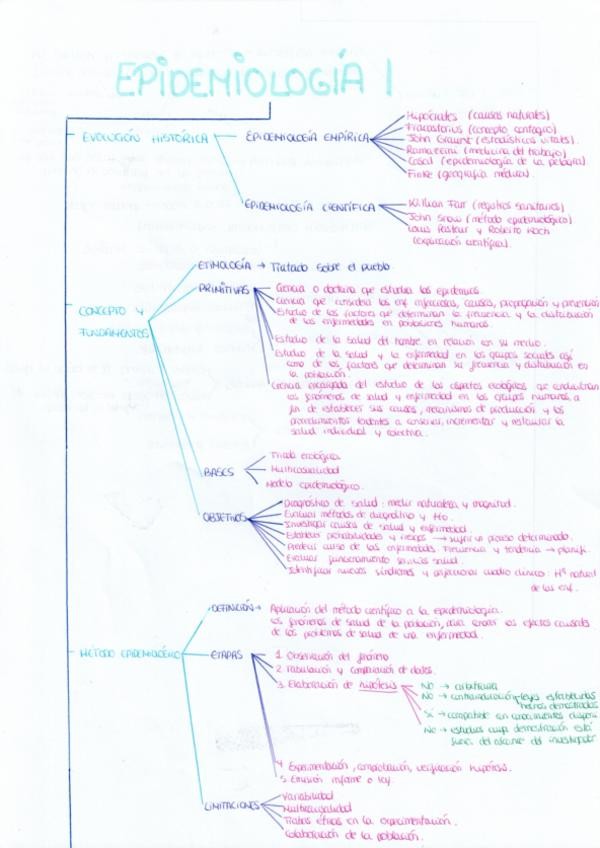 EPIDEMIOLOGÍA I
EVOLUCIÓN HISTÓRICA
EPIDEMIOLOGÍA EMPÍRICA
Hipócrates (causas naturales)
Fracastorius (concepto contagio)
John Graunt (estadísticas vitales).
Ramazzini (medicina del trabajo)
Casal (epidemiología de la pelagra)
Finke (geografía médica).
EPIDEMIOLOGÍA CIENTÍFICA
William Farr (registros sanitarios)
John Snow (método epidemiológico)
Louis Pasteur y Roberto Koch
(explicación científica).
CONCEPTO Y
FUNDAMENTOS
ETIMOLOGÍA → Tratado sobre el pueblo
PRIMITIVAS
Ciencia o doctrina que estudia las epidemias.
Ciencia que considera las enf infecciosas, causas, propagación y prevención
Estudio de los factores que determinan la frecuencia y la distribución
de las enfermedades en poblaciones humanas.
Estudio de la salud del hombre en relación con su medio.
Estudio de la salud y la enfermedad en los grupos sociales así
como de los factores que determinan su frecuencia y distribución en
la población.
Ciencia encargada del estudio de los aspectos ecológicos que condicionan
los fenómenos de salud y enfermedad en los grupos humanos, a
fin de establecer sus causas, mecanismos de producción y los
procedimientos tendentes a conservar, incrementar y restaurar la
salud individual y colectiva.
BASES
Triada ecológica
Multicausalidad
Modelo epidemiológico.
OBJETIVOS
Diagnóstico de salud: medir naturaleza y magnitud.
Evaluar métodos de diagnóstico y tto.
Investigar causas de salud y enfermedad.
Establecer probabilidades y riesgos → sufrir un proceso determinado.
Predecir curso de las enfermedades. Frecuencia y tendencia → planific.
Evaluar funcionamiento servicios salud.
Identificar nuevos síndromes y cuadro clínico: Hª natural
de las enf.
MÉTODO EPIDEMIOLÓGICO
DEFINICIÓN → Aplicación del método científico a la epidemiología.
los fenómenos de salud de la población, para conocer los efectos causados
de los problemas de salud de una enfermedad.
ETAPAS
1. Observación del fenómeno
2. Tabulación y comparación de datos.
3. Elaboración de hipótesis
No → arbitraria
No → contradicción leyes establecidas
hechos demostrados
Sí → compatible con conocimientos disponi
No → estudios cuya demostración está
fuera del alcance del investigador
4. Experimentación, comprobación, verificación hipótesis.
5. Emisión informe o ley.
LIMITACIONES
Variabilidad
Multicausalidad
Trabas éticas en la experimentación.
Colaboración de la población.